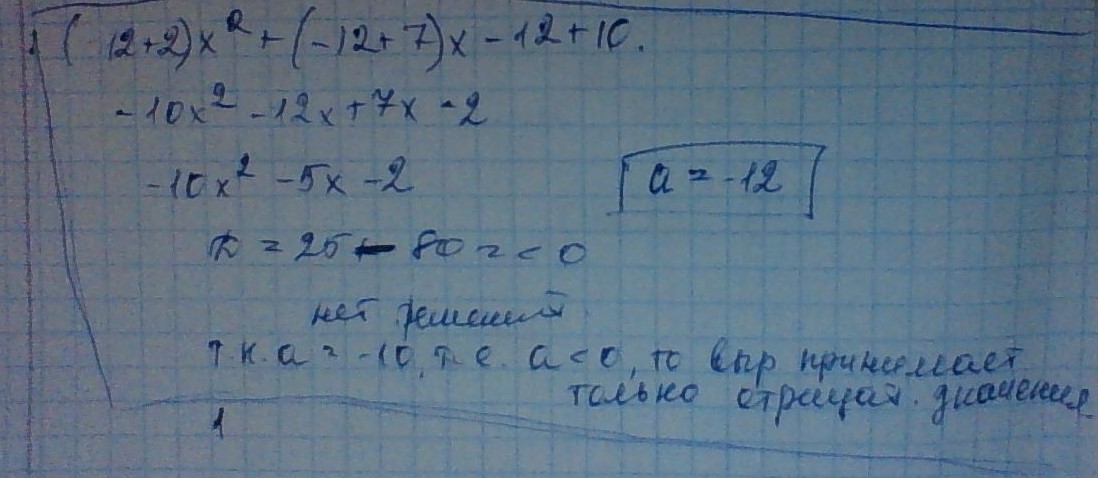 ( 12+2)x² + (-12+7)x - 12+10.
-10x² - 12x + 7x - 2
-10x² - 5x - 2
a = -12
D = 25 - 80 = < 0
нет решений.
т.к. a = -10, т.е. a < 0, то выр принимает
только отрицат. значения
1